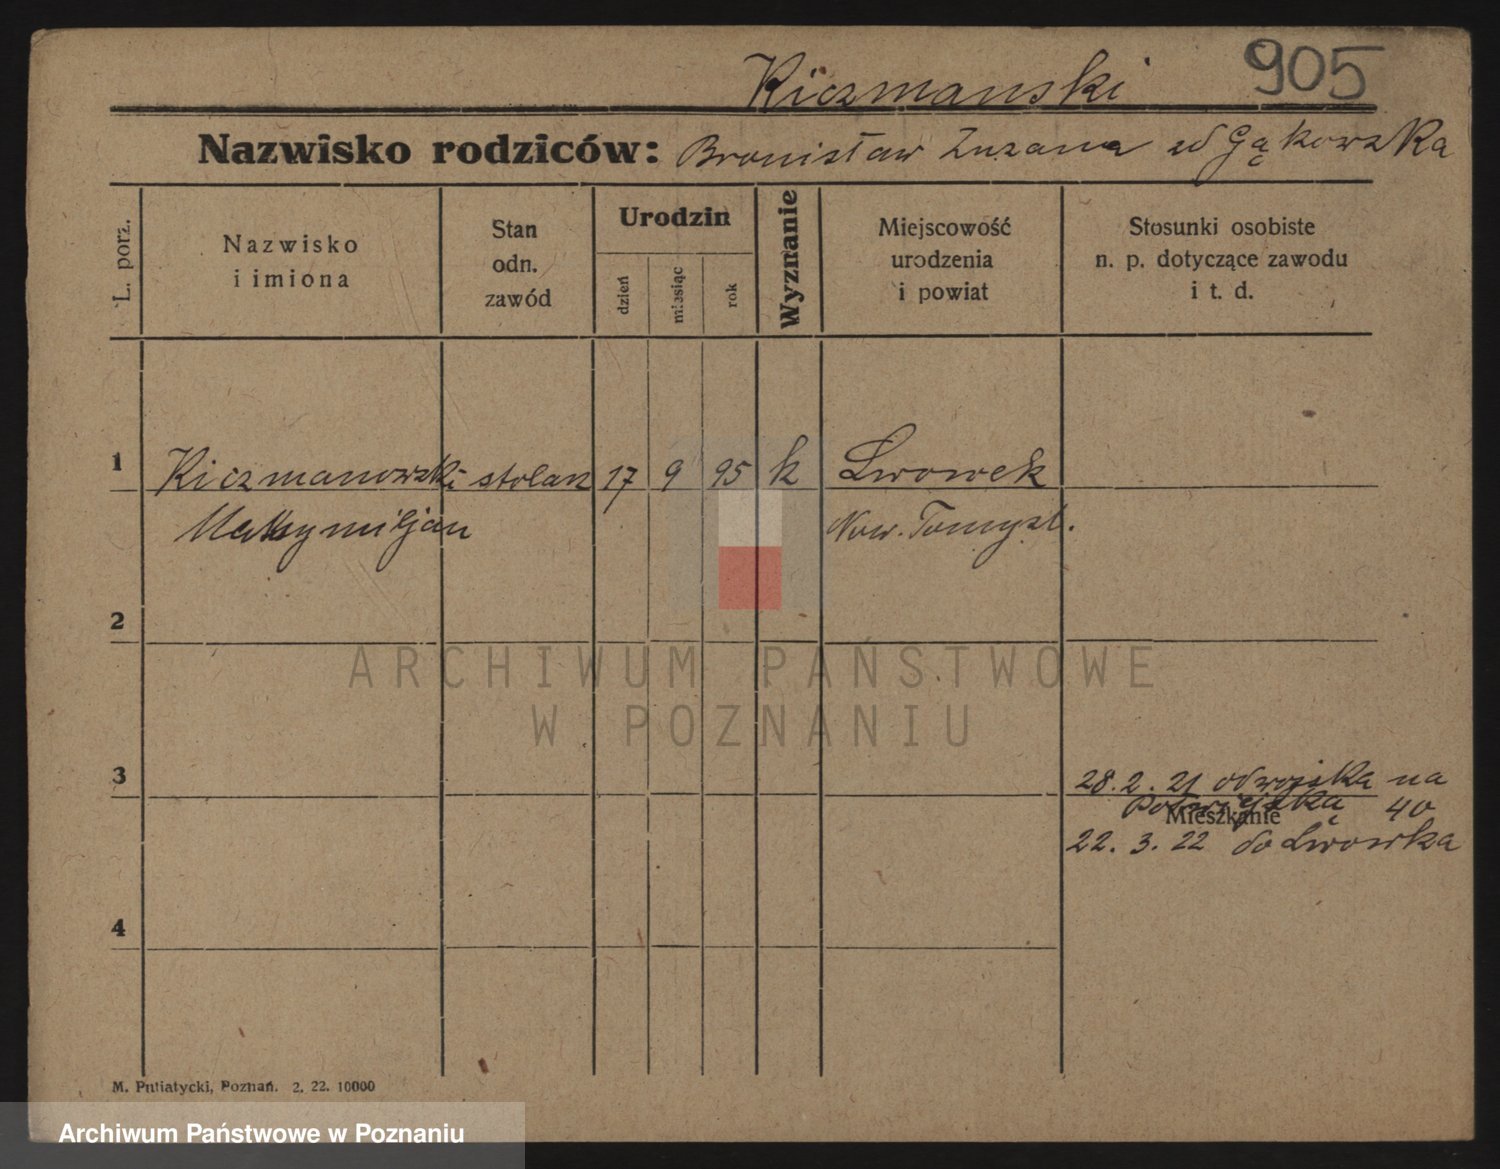 Kiczmanski 905
Nazwisko rodziców: Bronisław Zuzana zd Gąkowska
L. porz.
Nazwisko
i imiona
Stan
odn.
zawód
Urodzin
dzień
miesiąc
rok
Wyznanie
Miejscowość
urodzenia
i powiat
Stosunki osobiste
n. p. dotyczące zawodu
i t. d.
1 Kiczmanowski stolarz 17 9 95 k Lwowek
Maksymiljan Now. Tomyśl.
2
ARCHIWUM PAŃSTWOWE
W POZNANIU
3 28.2.21 od wojska na
40
Mieszkanie
22.3.22 do Lwowka
4
M. Putiatycki, Poznań. 2. 22. 10000
Archiwum Państwowe w Poznaniu